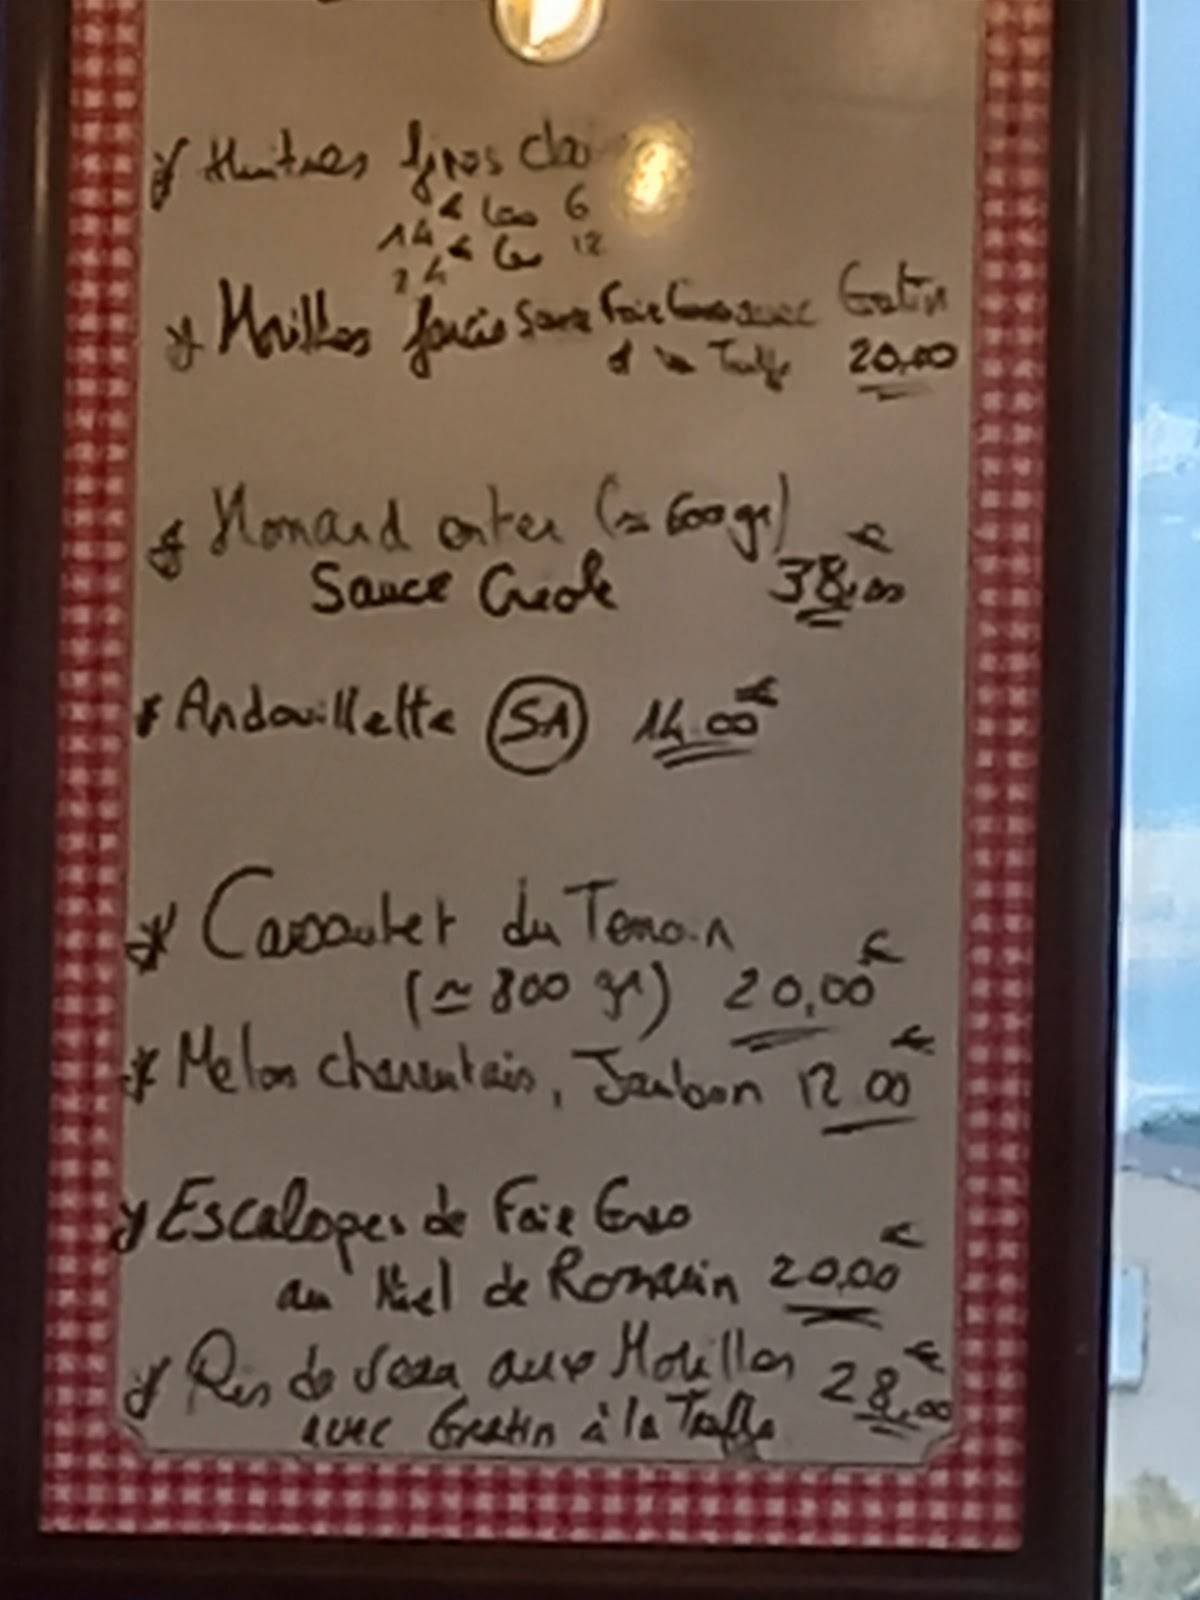 Huitres fines
14€ les 6
24€ les 12
Morilles farcies Sauce Foie Gras avec Gratin
à la Truffe 20,00
Homard entier (≃ 600 gr)
Sauce Creole 38,00€
Andouillette 5A 14.00€
Cassoulet du Terroir
(≃ 800 gr) 20,00€
Melon charentais, Jambon 12 00€
Escalopes de Foie Gras
au Miel de Romarin 20,00€
Ris de veau aux Morilles 28,00€
avec Gratin à la Truffe